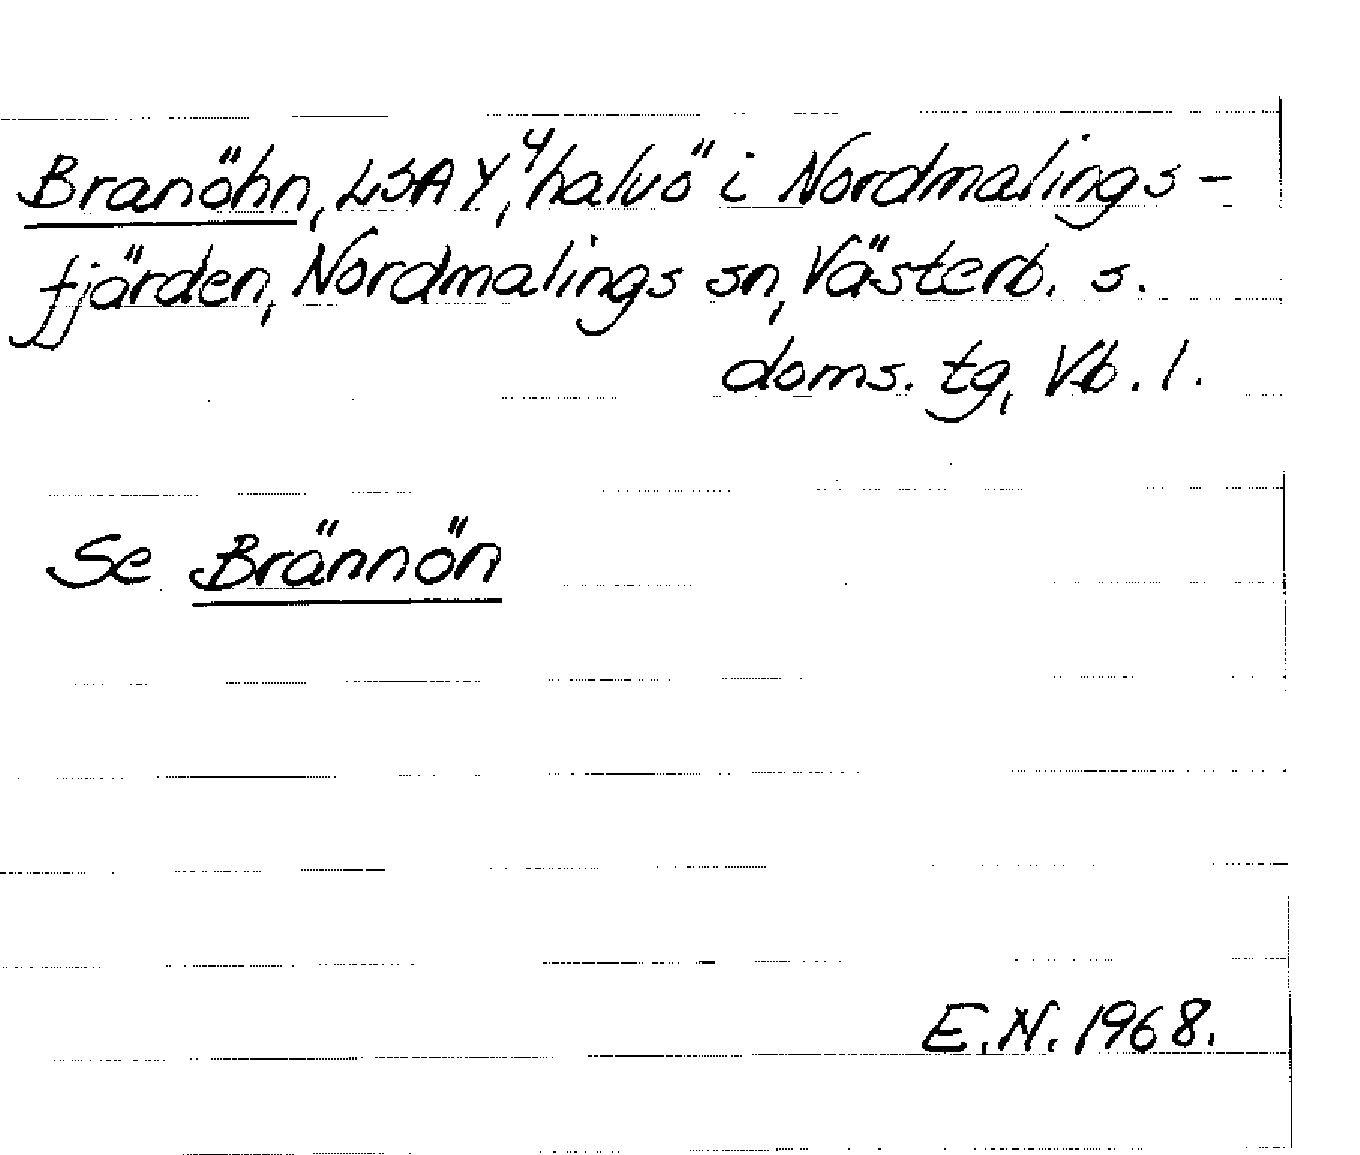 Branöhn, LSA Y⁴, halvö i Nordmalings-
fjärden, Nordmalings sn, Västerb. s.
doms. tg, Vb. l.
Se Brännön
E.N. 1968.